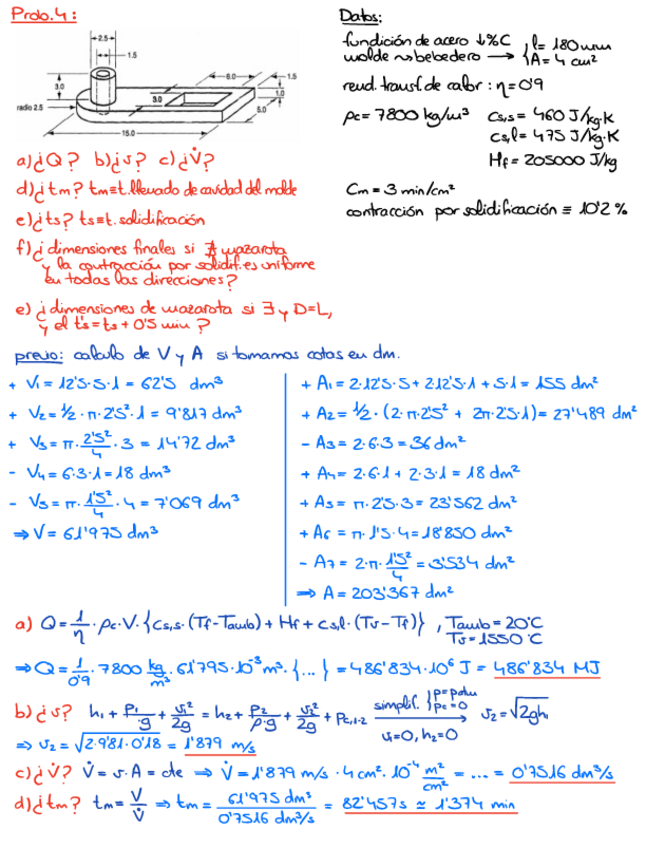 Prob.4:
2.5
1.5
3.0
radio 2.5
3.0
6.0
1.5
1.0
5.0
15.0
Datos:
fundición de acero ↓%C
molde ~> bebedero → { l = 180 mm
A = 4 cm²
rend. transf. de calor : η = 0'9
ρc = 7800 kg/m³ cs,s = 460 J/kg·K
cs,l = 475 J/kg·K
Hf = 205000 J/kg
Cm = 3 min/cm²
contracción por solidificación ≡ 10'2 %
a) ¿Q? b) ¿v? c) ¿V̇?
d) ¿tm? tm ≡ t. llenado de cavidad del molde
e) ¿ts? ts ≡ t. solidificación
f) ¿dimensiones finales si ∄ mazarota
y la contracción por solidif. es uniforme
en todas las direcciones?
e) ¿dimensiones de mazarota si ∃ y D=L,
y el t's = ts + 0'5 min?
previo: calculo de V y A si tomamos cotas en dm.
+ V1 = 12'5·5·1 = 62'5 dm³
+ V2 = 1/2 · π · 2'5² · 1 = 9'817 dm³
+ V3 = π · 2'5²/4 · 3 = 14'72 dm³
- V4 = 6·3·1 = 18 dm³
- V5 = π · 1'5²/4 · 4 = 7'069 dm³
⇒ V = 61'975 dm³
+ A1 = 2·12'5·5 + 2·12'5·1 + 5·1 = 155 dm²
+ A2 = 1/2 · (2·π·2'5² + 2π·2'5·1) = 27'489 dm²
- A3 = 2·6·3 = 36 dm²
+ A4 = 2·6·1 + 2·3·1 = 18 dm²
+ A5 = π·2'5·3 = 23'562 dm²
+ A6 = π·1'5·4 = 18'850 dm²
- A7 = 2·π · 1'5²/4 = 3'534 dm²
⇒ A = 203'367 dm²
a) Q = 1/η · ρc · V · {cs,s · (Tf - Tamb) + Hf + cs,l · (Tv - Tf)} , Tamb = 20°C
Tv = 1550 °C
⇒ Q = 1/0'9 · 7800 kg/m³ · 61'795·10⁻³ m³ · {...} = 486'834·10⁶ J = 486'834 MJ
b) ¿v? h1 + P1/ρ·g + v1²/2g = h2 + P2/ρ·g + v2²/2g + Pc,1-2 simplif. { p = patm
pc = 0 → v1=0, h2=0 v2 = √2gh1
⇒ v2 = √2·9'81·0'18 = 1'879 m/s
c) ¿V̇? V̇ = v·A = cte ⇒ V̇ = 1'879 m/s · 4 cm² · 10⁻⁴ m²/cm² = ... = 0'7516 dm³/s
d) ¿tm? tm = V/V̇ ⇒ tm = 61'975 dm³ / 0'7516 dm³/s = 82'457s ≃ 1'374 min